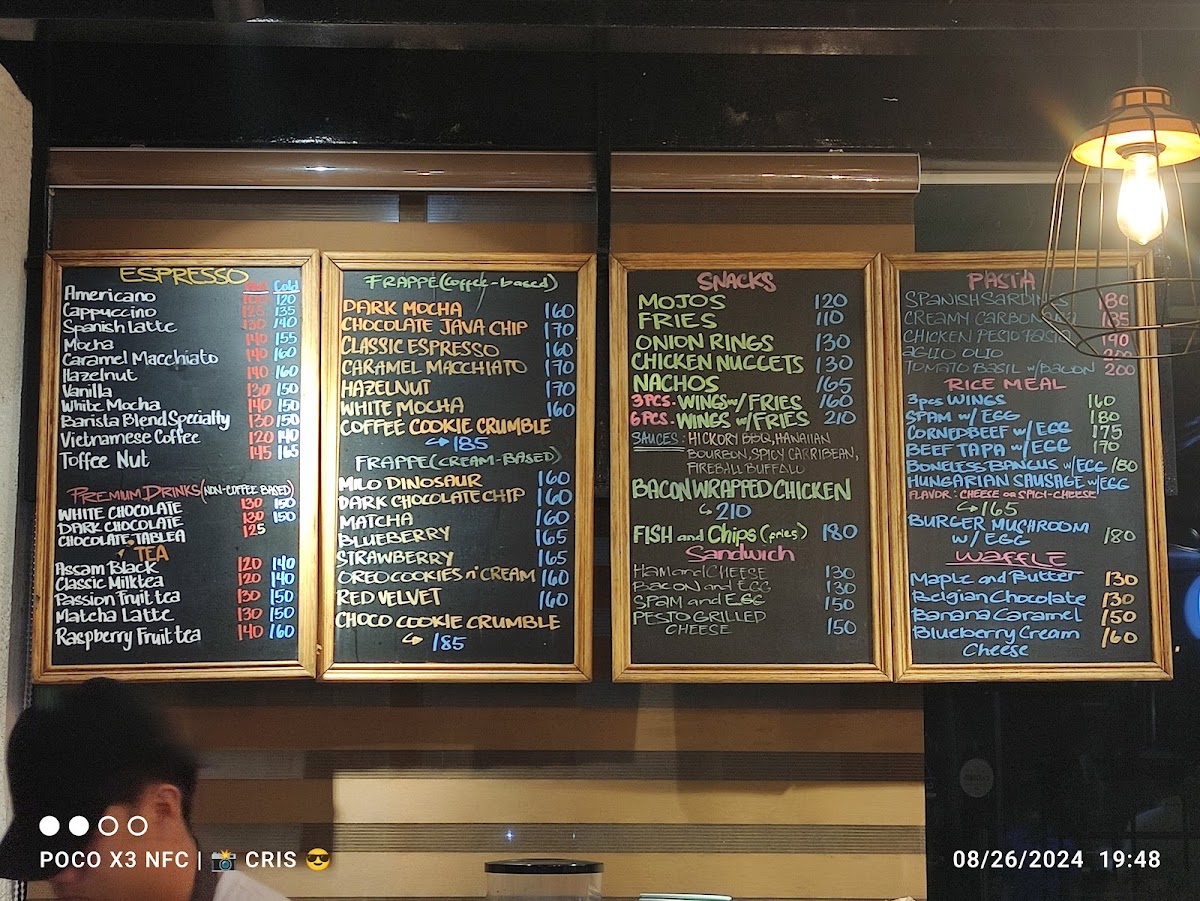 ESPRESSO
Hot Cold
Americano 120
Cappuccino 125 135
Spanish Latte 130 140
Mocha 140 155
Caramel Macchiato 140 160
Hazelnut 140 160
Vanilla 130 150
White Mocha 140 150
Barista Blend Specialty 130 150
Vietnamese Coffee 120 140
Toffee Nut 145 165
PREMIUM DRINKS (NON-COFFEE BASED)
WHITE CHOCOLATE 130 150
DARK CHOCOLATE 130 150
CHOCOLATE TABLEA 125
TEA
Assam Black 120 140
Classic Milktea 120 140
Passion Fruit tea 130 150
Matcha Latte 130 150
Raspberry Fruit tea 140 160
FRAPPE (Coffee-based)
DARK MOCHA 160
CHOCOLATE JAVA CHIP 170
CLASSIC ESPRESSO 160
CARAMEL MACCHIATO 170
HAZELNUT 170
WHITE MOCHA 160
COFFEE COOKIE CRUMBLE
185
FRAPPE (CREAM-BASED)
MILO DINOSAUR 160
DARK CHOCOLATE CHIP 160
MATCHA 160
BLUEBERRY 165
STRAWBERRY 165
OREO COOKIES n' CREAM 160
RED VELVET 160
CHOCO COOKIE CRUMBLE
185
SNACKS
MOJOS 120
FRIES 110
ONION RINGS 130
CHICKEN NUGGETS 130
NACHOS 165
3PCS. WINGS w/ FRIES 160
6PCS. WINGS w/ FRIES 210
SAUCES: HICKORY BBQ, HAWAIIAN
BOURBON, SPICY CARRIBEAN,
FIREBALL BUFFALO
BACON WRAPPED CHICKEN
210
FISH and Chips (fries) 180
Sandwich
Ham and CHEESE 130
BACON and EGG 130
SPAM and EGG 150
PESTO GRILLED
CHEESE 150
PASTA
SPANISH SARDINES 180
CREAMY CARBONARA 185
CHICKEN PESTO PASTA 190
AGLIO OLIO 200
TOMATO BASIL w/ BACON 200
RICE MEAL
3pcs WINGS 160
SPAM w/ EGG 180
CORNEDBEEF w/ EGG 175
BEEF TAPA w/ EGG 170
BONELESS BANGUS w/EGG 180
HUNGARIAN SAUSAGE w/EGG
FLAVOR: CHEESE or SPICY-CHEESE
165
BURGER MUSHROOM
W/ EGG 180
WAFFLE
Maple and Butter 130
Belgian Chocolate 130
Banana Caramel 150
Blueberry Cream 160
Cheese
POCO X3 NFC | 📸 CRIS 😎
08/26/2024 19:48